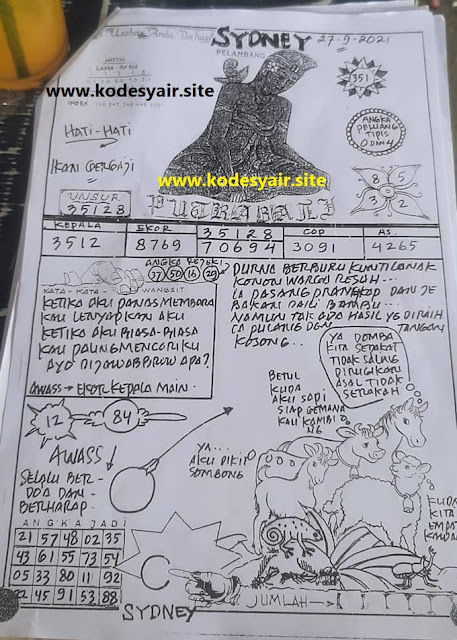 Usaha Anda
SYDNEY
27-9-2021
PELAMBANG
www.kodesyair.site
351
HATI-HATI
ANGKA
PELUANG
TIPIS
0 DAN 4
IKAN GERGAJI
8 5
3 2
www.kodesyair.site
UNSUR
35128
PUTRA BALI
KEPALA
EKOR
35128
COP
AS.
3512
8769
70694
3091
4265
ANGKA REJEKI
37 50 16 29
KATA - KATA - WANGSIT
KETIKA AKU PANAS MEMBARA
KAU LENYAPKAN AKU
KETIKA AKU BIASA-BIASA
KAU PALING MENCARIKU
AYO DIJAWAB BROW APA?
AWASS → EKOR KEPALA MAIN.
DURNA BERBURU KUNTILANAK
KONON WARGA RESUH...
IA PASANG PERANGKAP DAN JE
BAKAN DARI BAMBU...
NAMUN TAK ADA HASIL YG DIRAIH
IA PULANG DGN TANGAN
KOSONG..
YA DOMBA
KITA SEPAKAT
TIDAK SALING
DIRUGIKAN
ASAL TIDAK
SERAKAH
BETUL
KUDA
AKU SAPI
SIAP GEMANA
KAU KAMBI
NG
12
84
YA...
AKU PIKIR
SOMBONG
AWASS
SELALU BER-
DOA DAN
BERHARAP.
KUDA
KITA
EMPAT
KAWAN
ANGKA JADI
21 57 48 02 35
43 61 55 73 54
05 33 80 11 92
22 45 91 53 88
C
JUMLAH
SYDNEY